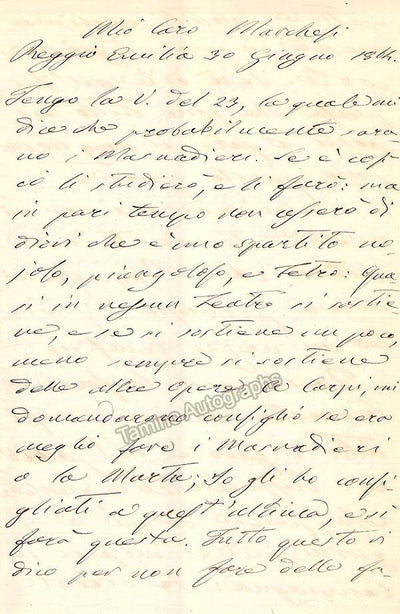 Mio Caro Marchesi
Reggio Emilia 30 Giugno 18
Tengo la V. del 23, la quale mi
dice che probabilmente sara-
no i Masnadieri. Se è così
ciò li studierò, e li farò: ma
in pari tempo non cesserò di
dirvi che è uno spartito no-
joso, piagnoloso, e tetro: qua-
si in nessun teatro si sostie-
ne, e se si sostiene un poco,
meno sempre si sostiene
delle altre opere. A Carpi, mi
domandarono consiglio se era
meglio fare i Masnadieri
o la Marta; Io gli ho consi-
gliati a quest'ultima, e si
farà questa. Tutto questo vi
dico per non fare delle fa-
Tamino Autographs